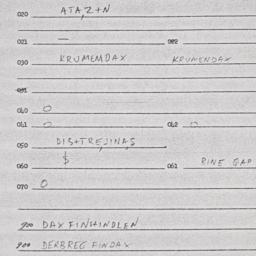 020 ATA,Z+N
021 — 022
030 KRUMEMDAX KRUMENDAX
031
040 0
041 0 042 0
050 DIS+TREJINAS
060 $ 061 PINE GAP
070 0
900 DAXFINHINDLEN
900 DERBREG FINDAX